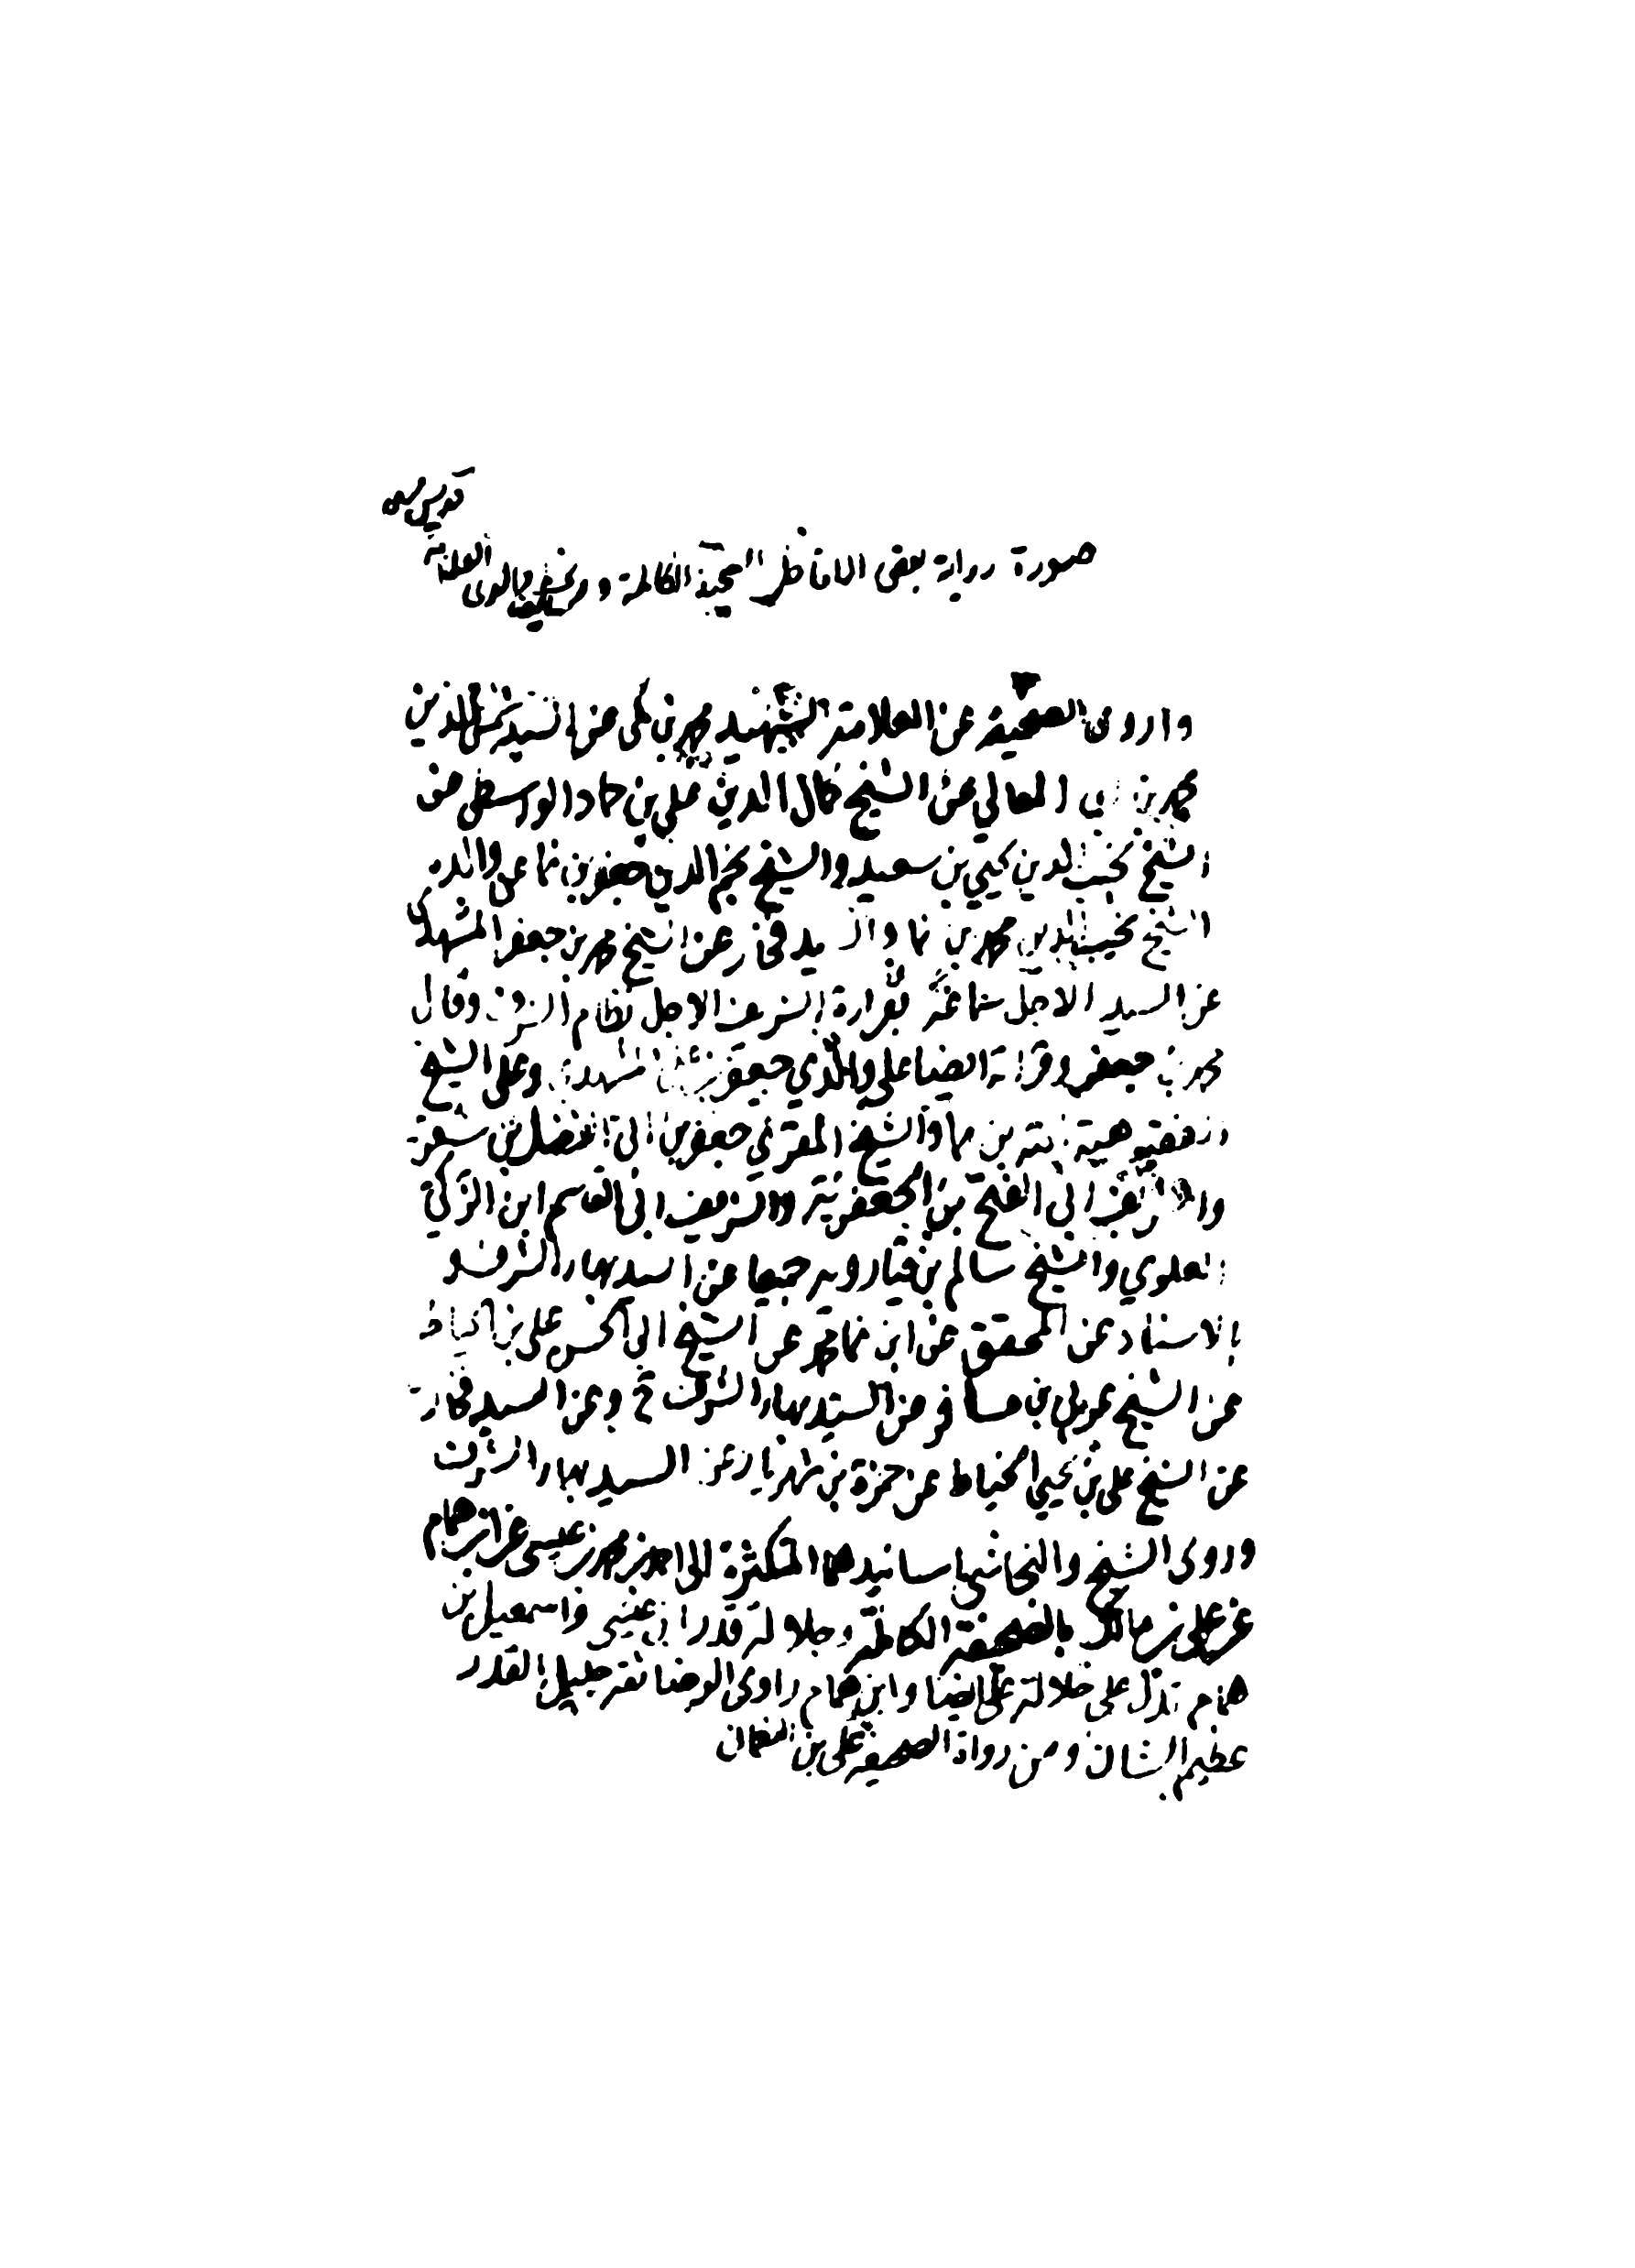 قدس سره
صورة رواية بعض الافاضل الصحيفة الكاملة و بخط والدي العلامة
واروي الصحيفة عن العلامة الشهيد محمد بن مكي عن السيد شمس الدين
محمد بن ابي المعالي عن الشيخ كمال الدين علي بن حماد الواسطي عن
الشيخ نجيب الدين يحيي بن سعيد والشيخ نجم الدين جعفر بن نما عن والده
الشيخ نجيب الدين محمد بن نما والسيد فخار عن الشيخ محمد بن جعفر المشهدي
عن السيد الاجل سماعه بقراءة الشريف الاجل نظام الشرف وقال
محمد بن جعفر وقراته ايضا علي والدي جعفر بن علي المشهدي وعلى الشيخ
الفقيه هبة الله بن نما والشيخ المقري جعفر بن ابي الفضل بن شعرة
والشريف ابي الفتح بن الجعفرية والشريف ابي القاسم ابن الزكي
العلوي والشيخ سالم بن قبارويه جميعا عن السيد بهاء الشرف و
بالاسناد عن المحقق عن ابن نما عن الشيخ ابي الحسن علي بن الخياط
عن الشيخ عربي بن مسافر عن السيد بهاء الشرف ح وعن السيد فخار
عن الشيخ علي بن يحيي الخياط عن حمزة بن شهريار عن السيد بهاء الشرف
وروى الشيخ والنجاشي باسانيدهما المتكثرة الى احمد بن محمد بن عيسى عن ابن همام
عن علي بن مالك بالصحيفة الكاملة وجلالة قدر ابن عيسى واسمعيل بن
همام تدل على جلالة علي ايضا وابن همام راوى الرضا ثقة جليل القدر
عظيم الشان ومن رواة الصحيفة علي بن النعمان